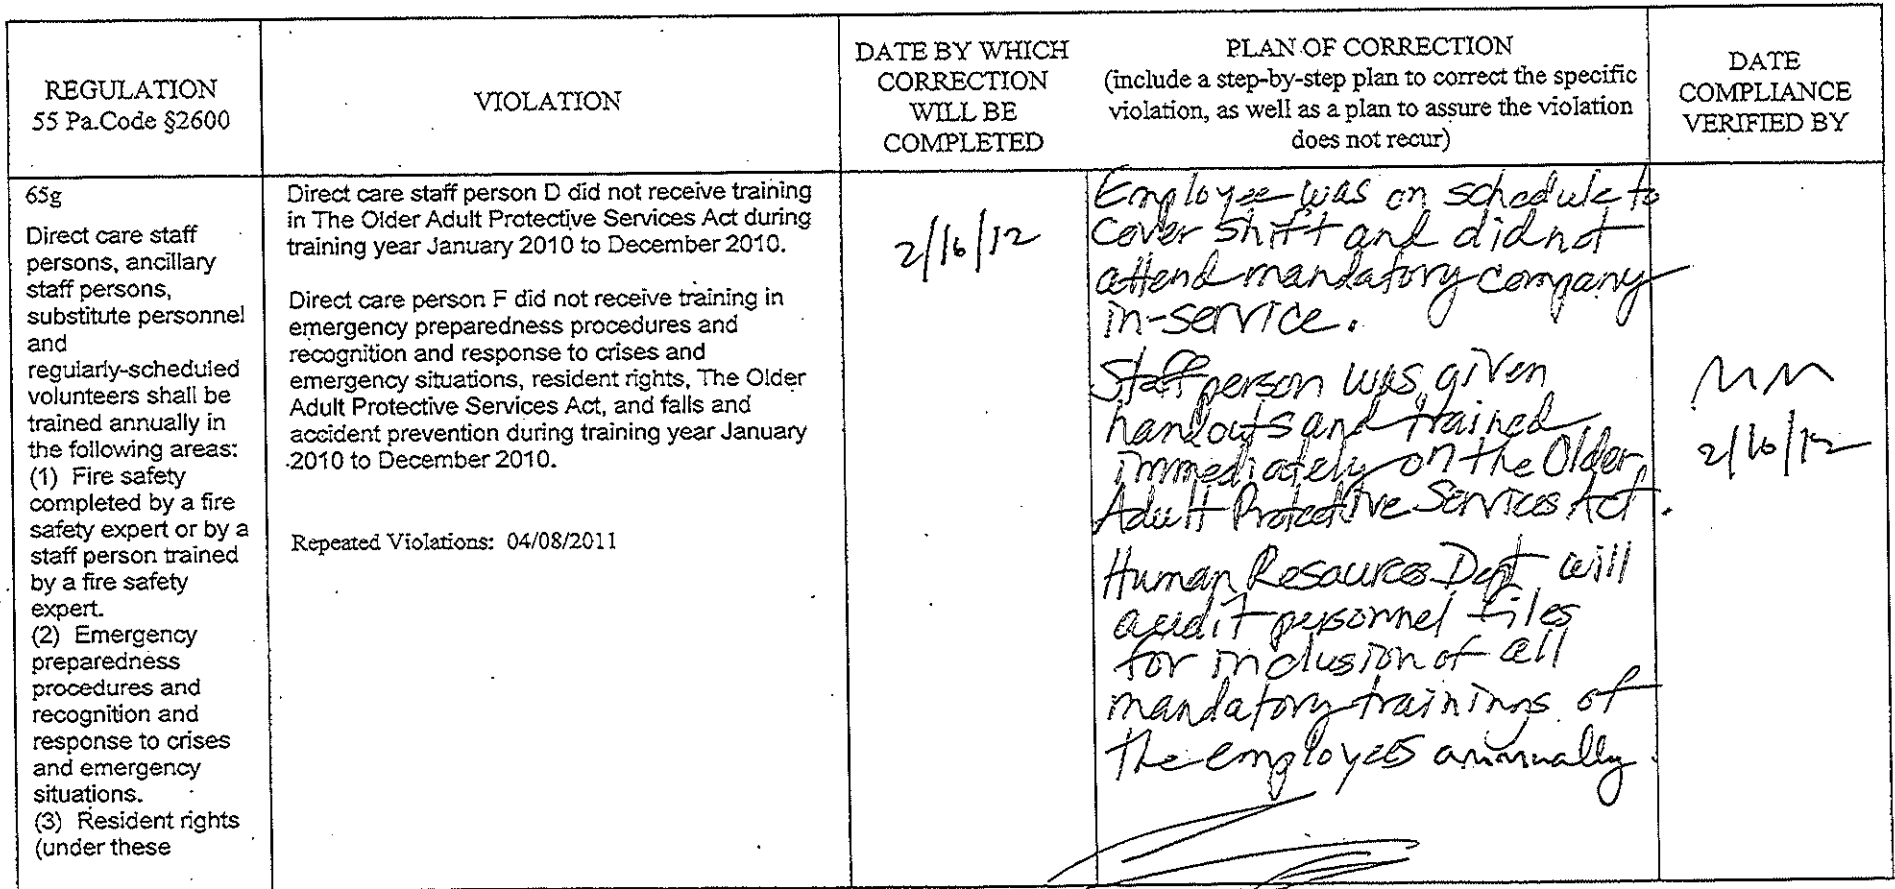 REGULATION
55 Pa.Code §2600
VIOLATION
DATE BY WHICH
CORRECTION
WILL BE
COMPLETED
PLAN OF CORRECTION
(include a step-by-step plan to correct the specific
violation, as well as a plan to assure the violation
does not recur)
DATE
COMPLIANCE
VERIFIED BY
65g
Direct care staff
persons, ancillary
staff persons,
substitute personnel
and
regularly-scheduled
volunteers shall be
trained annually in
the following areas:
(1) Fire safety
completed by a fire
safety expert or by a
staff person trained
by a fire safety
expert.
(2) Emergency
preparedness
procedures and
recognition and
response to crises
and emergency
situations.
(3) Resident rights
(under these
Direct care staff person D did not receive training
in The Older Adult Protective Services Act during
training year January 2010 to December 2010.
Direct care person F did not receive training in
emergency preparedness procedures and
recognition and response to crises and
emergency situations, resident rights, The Older
Adult Protective Services Act, and falls and
accident prevention during training year January
2010 to December 2010.
Repeated Violations: 04/08/2011
2/16/12
Employee was on schedule to
cover shift and did not
attend mandatory company
in-service.
Staff person was given
handouts and trained
immediately on the Older
Adult Protective Services Act.
Human Resources Dept will
audit personnel files
for inclusion of all
mandatory trainings of
the employees annually.
2/16/12